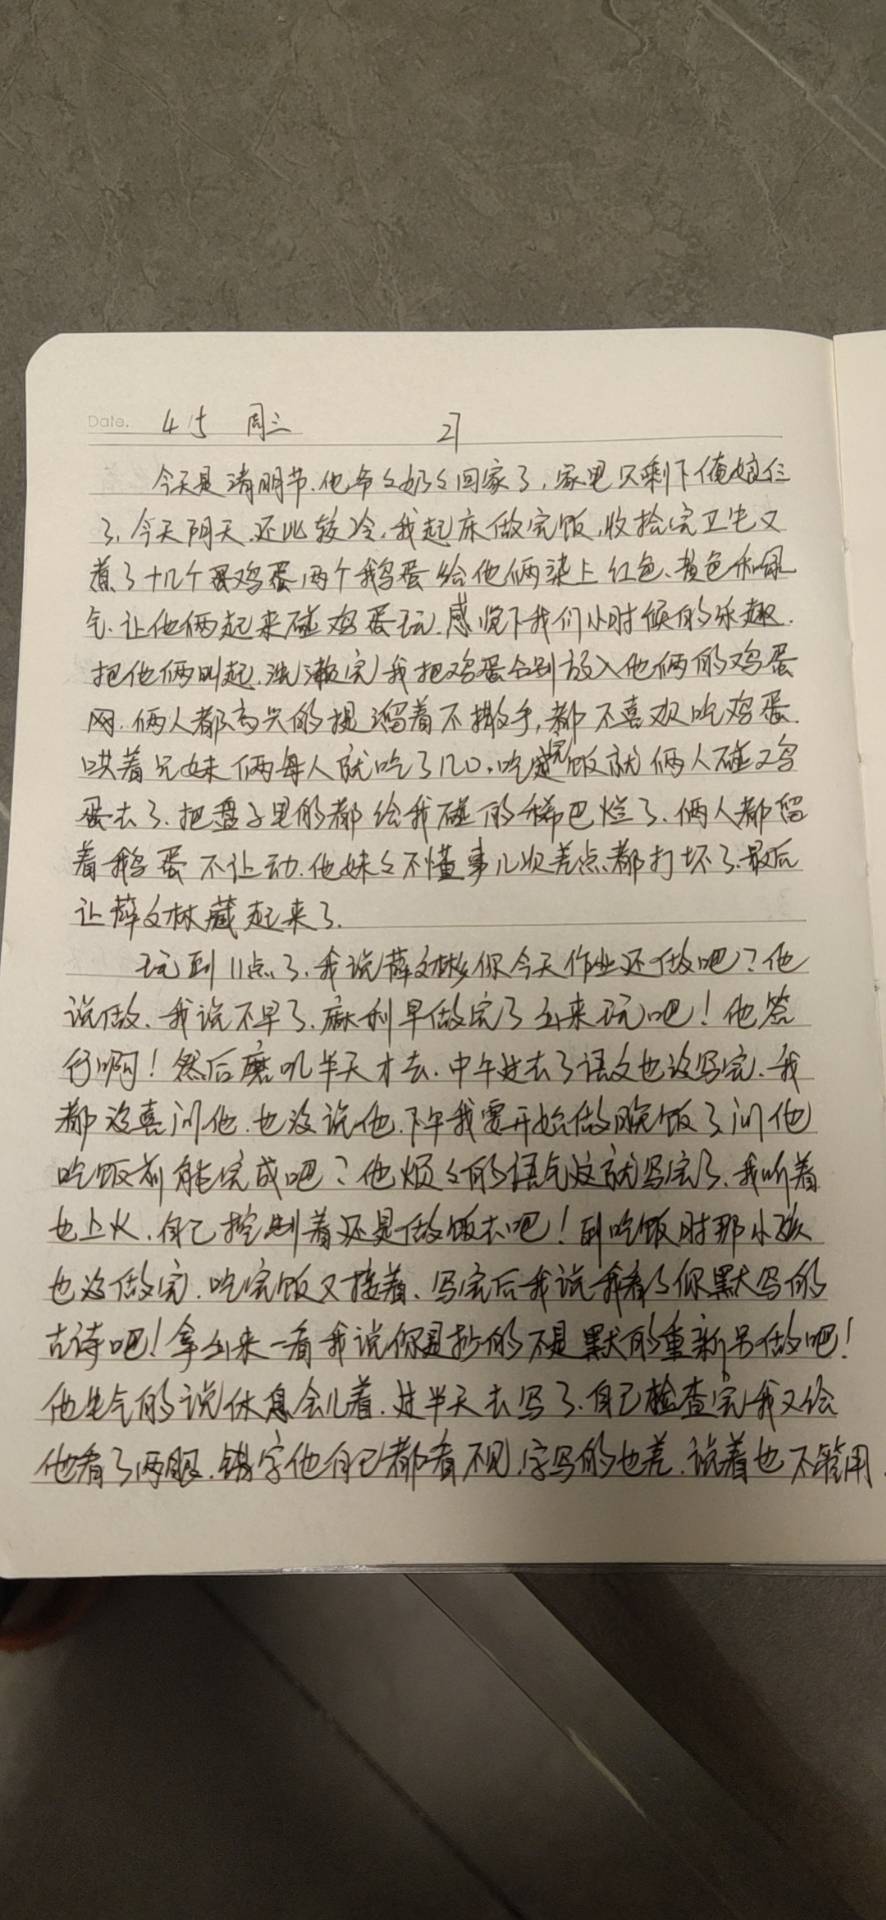 Date. 4/5 周三 21
今天是清明节.他爷々奶々回家了,家里只剩下俺娘仨
了.今天阴天.还比较冷.我起床做完饭,收拾完卫生又
煮了十几个蛋鸡蛋,两个鹅蛋给他俩染上红色、黄色
气.让他俩起来碰鸡蛋玩.感觉下我们小时候的乐趣.
把他俩叫起.洗漱完我把鸡蛋分别放入他俩的鸡蛋
网.俩人都高兴的提溜着不撒手,都不喜欢吃鸡蛋.
哄着兄妹俩每人就吃了几口.吃完饭就俩人碰鸡
蛋去了.把盘子里的都给我碰的稀巴烂了.俩人都留
着鹅蛋不让动.他妹々不懂事几次差点都打坏了.最后
让薛文林藏起来了.
玩到11点了.我说薛文彬你今天作业还做吧?他
说做.我说不早了.麻利早做完了出来玩吧!他答
应啊!然后磨叽半天才去.中午过去了语文也没写完.我
都没喜问他.也没说他.下午我要开始做晚饭了问他
吃饭前能完成吧?他烦々的语气这就写完了.我听着
也上火.自己控制着还是做饭去吧!到吃饭时那小孩
也没做完.吃完饭又接着.写完后我说我看了你默写的
古诗吧!拿出来一看我说你是抄的不是默的重新另做吧!
他生气的说休息会儿着.过半天去写了.自己检查完我又给
他看了两眼.错字他自己都看不见.字写的也差.说着也不管用.